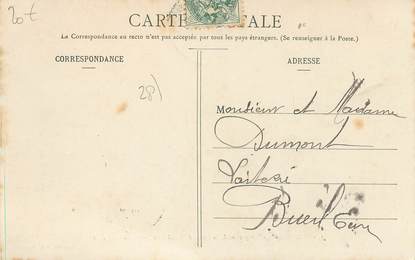 20t
CARTE POSTALE
La Correspondance au recto n'est pas acceptée par tous les pays étrangers. (Se renseigner à la Poste.)
CORRESPONDANCE
ADRESSE
28)
Monsieur et Madame
Dumont
Bueil Eure